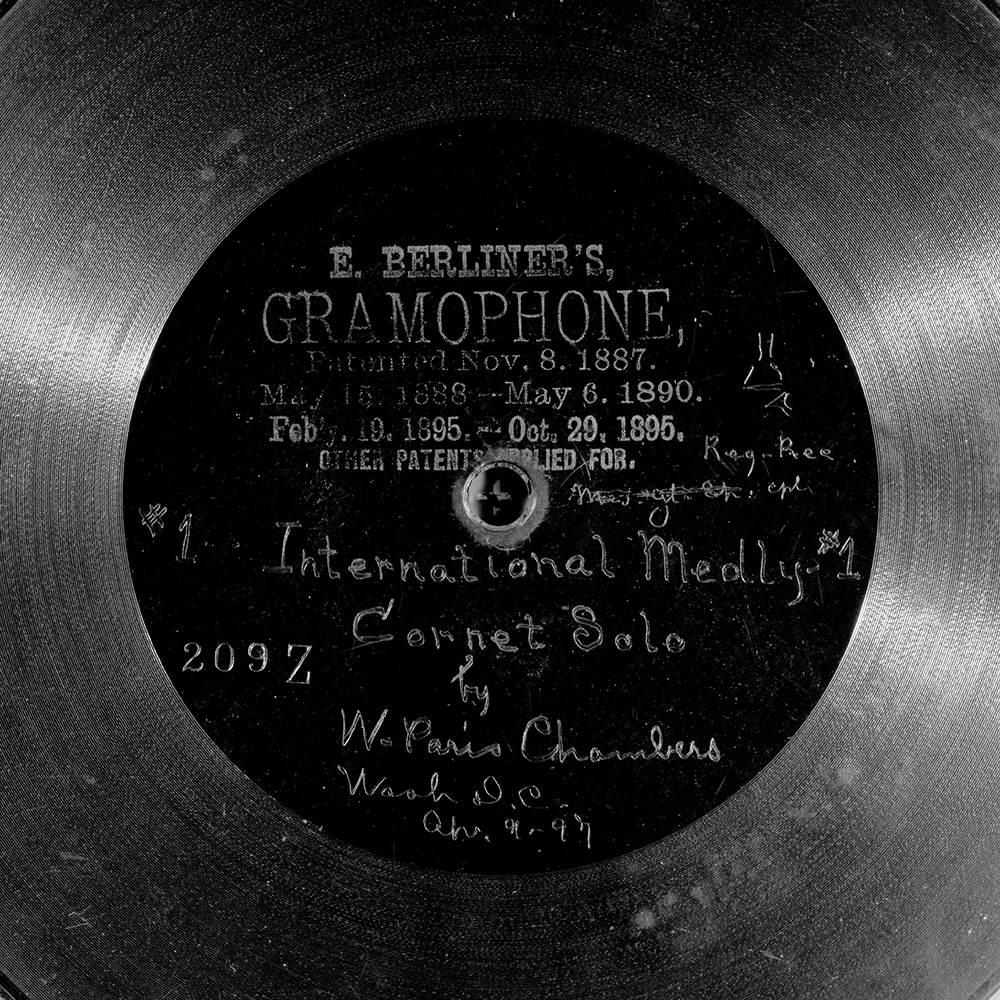 E. BERLINER'S,
GRAMOPHONE,
Patented Nov. 8. 1887.
May 15. 1888 — May 6. 1890.
Feb'y. 19. 1895. — Oct. 29, 1895.
OTHER PATENTS APPLIED FOR.
Reg-Pree
#1 International Medly-#1
Cornet Solo
209 Z
by
W. Paris Chambers
Wash D.C.